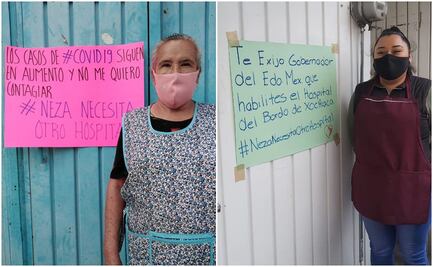 LOS CASOS DE #COVID19 SIGUEN
EN AUMENTO Y NO ME QUIERO
CONTAGIAR
#NEZA NECESITA
OTRO HOSPITAL
Te Exijo Gobernador
del Edo Mex. que
habilites el Hospital
del Bordo de Xochiaca
#NezaNecesitaOtroHospital